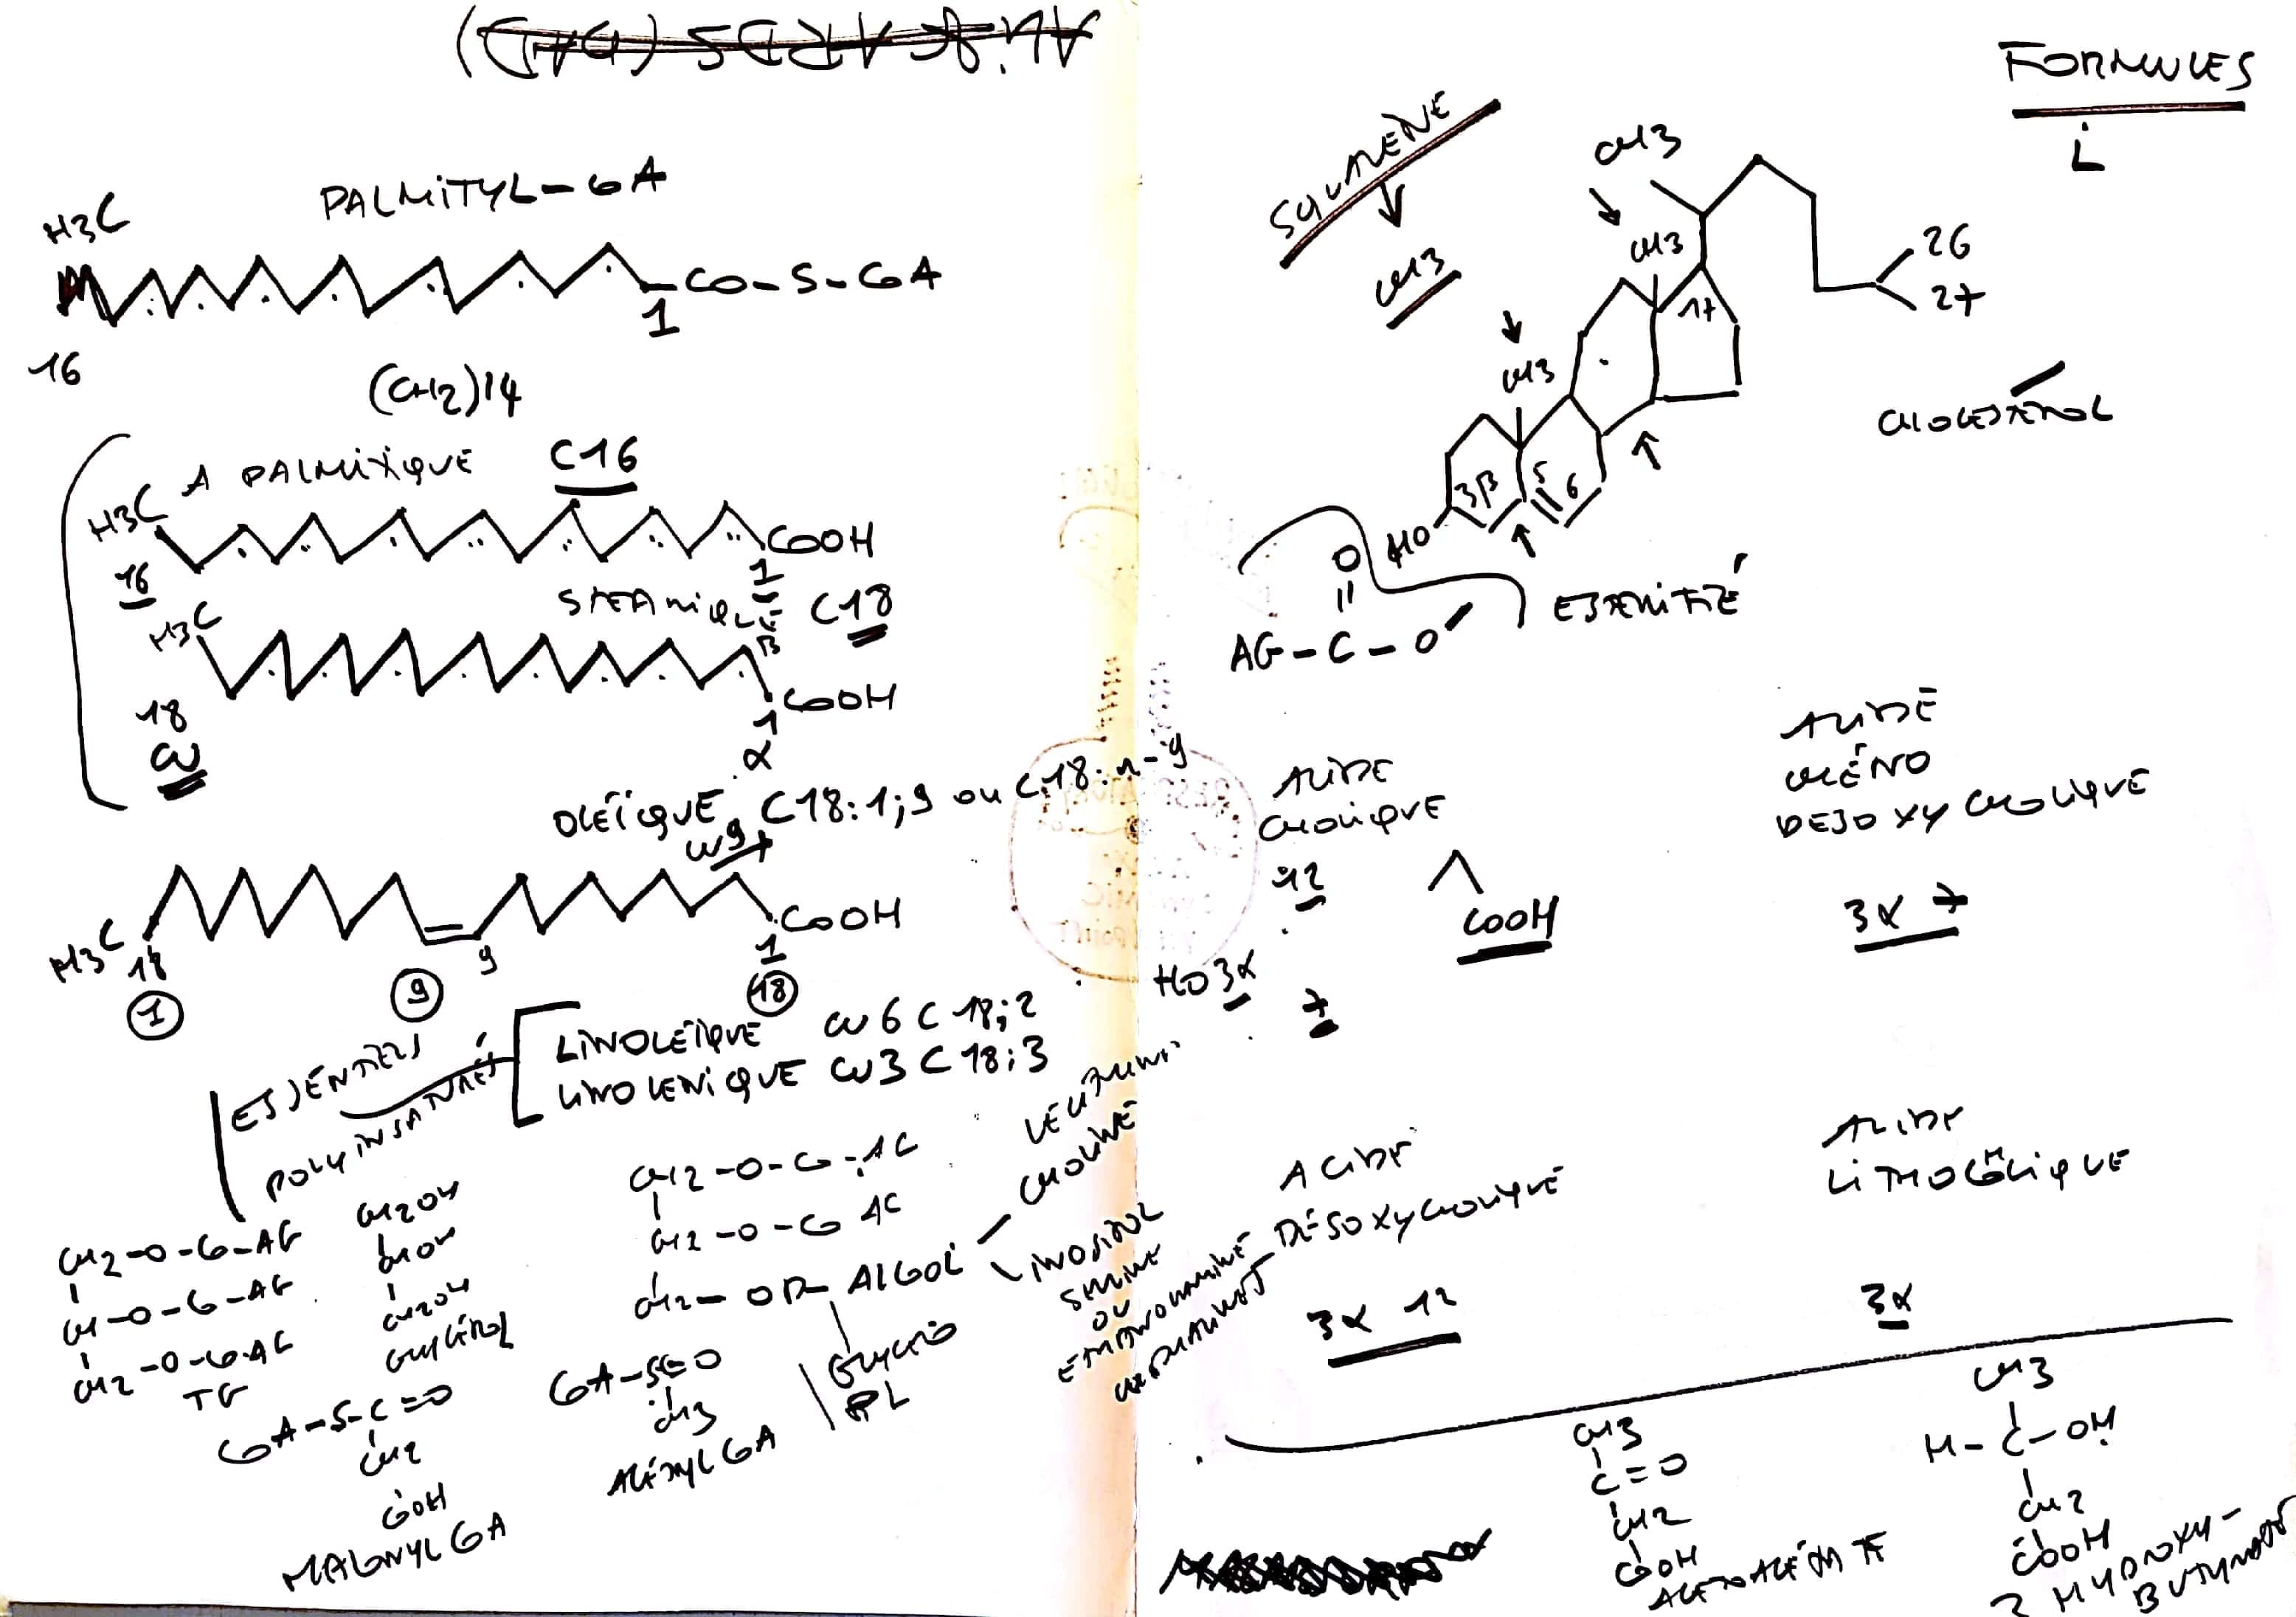 FORMULES
L
PALMITYL-COA
H3C
CO-S-COA
1
16
(CH2)14
A PALMITIQUE C16
H3C
COOH
16
1
STEARIQUE C18
H3C
β
COOH
18
1
ω
α
OLÉIQUE C18:1;9 ou C18:n-9
ω9
COOH
H3C 18
9
1
1
9
18
ESSENTIELS
POLYINSATURÉS
LINOLÉIQUE ω6 C 18;2
LINOLENIQUE ω3 C 18:3
CH2-O-CO-AG
CH-O-CO-AG
CH2-O-CO-AG
TG
CH2OH
CHOH
CH2OH
GLYCÉROL
CH2-O-CO-AG
CH2-O-CO AG
CH2-OP-ALCOOL
CHOLINE
INOSITOL
SERINE
OU
GLYCÉRO
PL
COA-S-C=O
CH2
COOH
MALONYL COA
COA-SC=O
CH3
ACÉTYL COA
SQUALÈNE
CH3
CH3
CH3
CH3
17
26
27
CHOLESTÉROL
3β
5
6
HO
O
AG-C-O
ESTÉRIFIÉ
ACIDE
CHOLIQUE
12
COOH
HO3α
7
ACIDE
CHÉNO
DESOXYCHOLIQUE
3α 7
ACIDE
DÉSOXYCHOLIQUE
3α 12
ACIDE
LITHOCHOLIQUE
3α
CH3
C=O
CH2
COOH
ACETOACÉTATE
CH3
H-C-OH
CH2
COOH
3 HYDROXY-
BUTYRATE